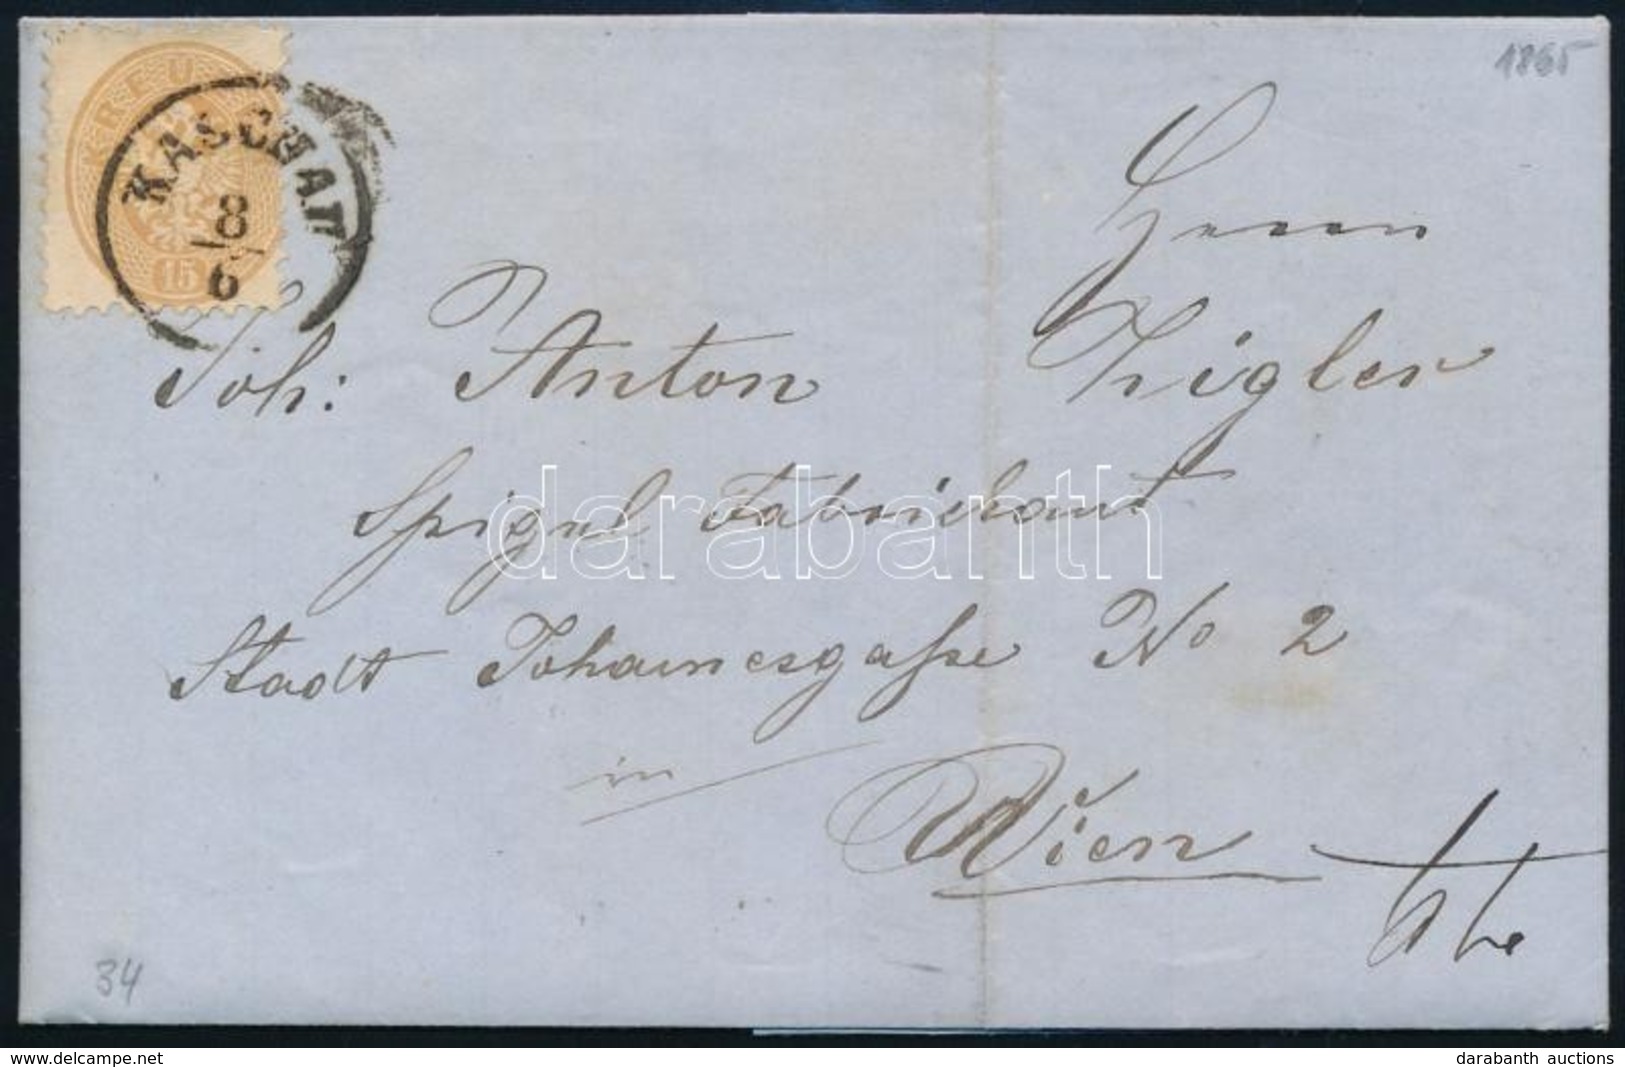 1865
KREUZER
KASCHAU
8
6
15
Herrn
Joh: Anton Zigler
Spigel Fabrickant
Stadt Johannesgaße No 2
in
Wien
34
darabanth
www.delcampe.net
darabanth auctions